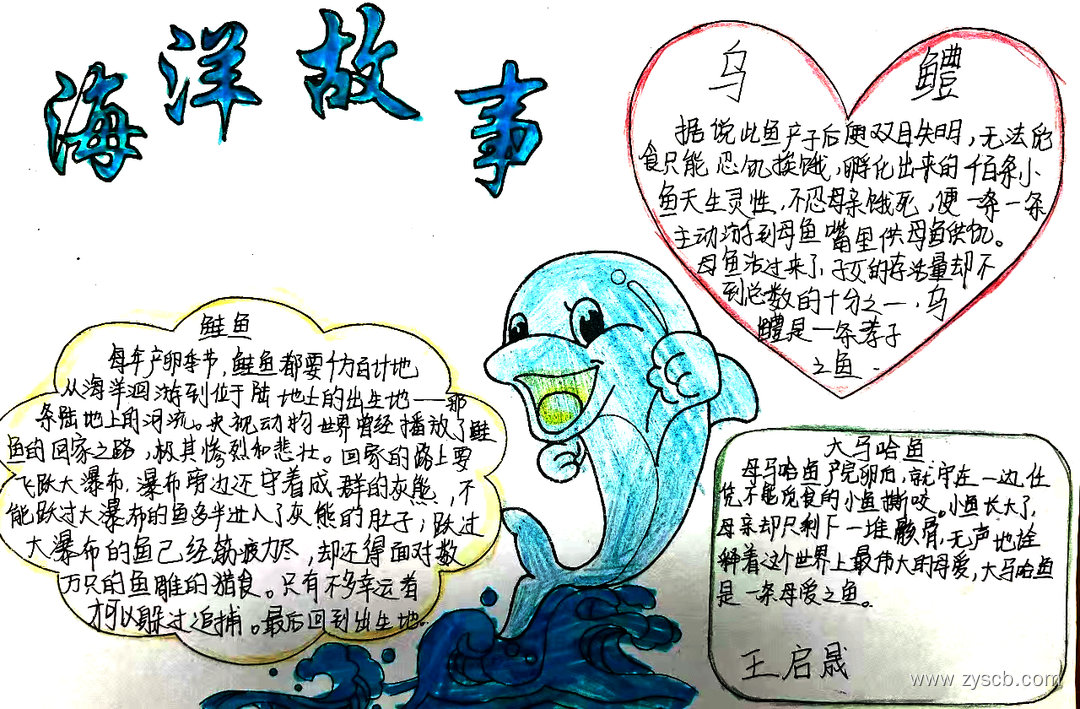 海洋故事
乌鳢
据说此鱼产子后便双目失明,无法觅
食只能忍饥挨饿,孵化出来的千百条小
鱼天生灵性,不忍母亲饿死,便一条一条
主动游到母鱼嘴里供母鱼供饥。
母鱼活过来了,子女的存活量却不
到总数的十分之一,乌
鳢是一条孝子
之鱼.
鲑鱼
每年产卵季节,鲑鱼都要千方百计地
从海洋洄游到位于陆地上的出生地——那
条陆地上的河流。央视动物世界曾经播放了鲑
鱼的回家之路,极其惨烈和悲壮。回家的路上要
飞跃大瀑布,瀑布旁边还守着成群的灰熊,不
能跃过大瀑布的鱼多半进入了灰熊的肚子;跃过
大瀑布的鱼已经筋疲力尽,却还得面对数
万只的鱼雕的猎食。只有不多幸运者
才可以躲过追捕。最后回到出生地.
大马哈鱼
母马哈鱼产完卵后,就守在一边,任
凭不能觅食的小鱼撕咬。小鱼长大了,
母亲却只剩下一堆骸骨,无声地诠
释着这个世界上最伟大的母爱,大马哈鱼
是一条母爱之鱼。
王启晟
www.zyscb.com